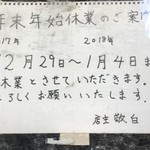 年末年始休業のご案内
17年 2018年
12月29日〜1月4日ま
休業とさせていただきます。
ろしくお願いいたします。
店主 敬白